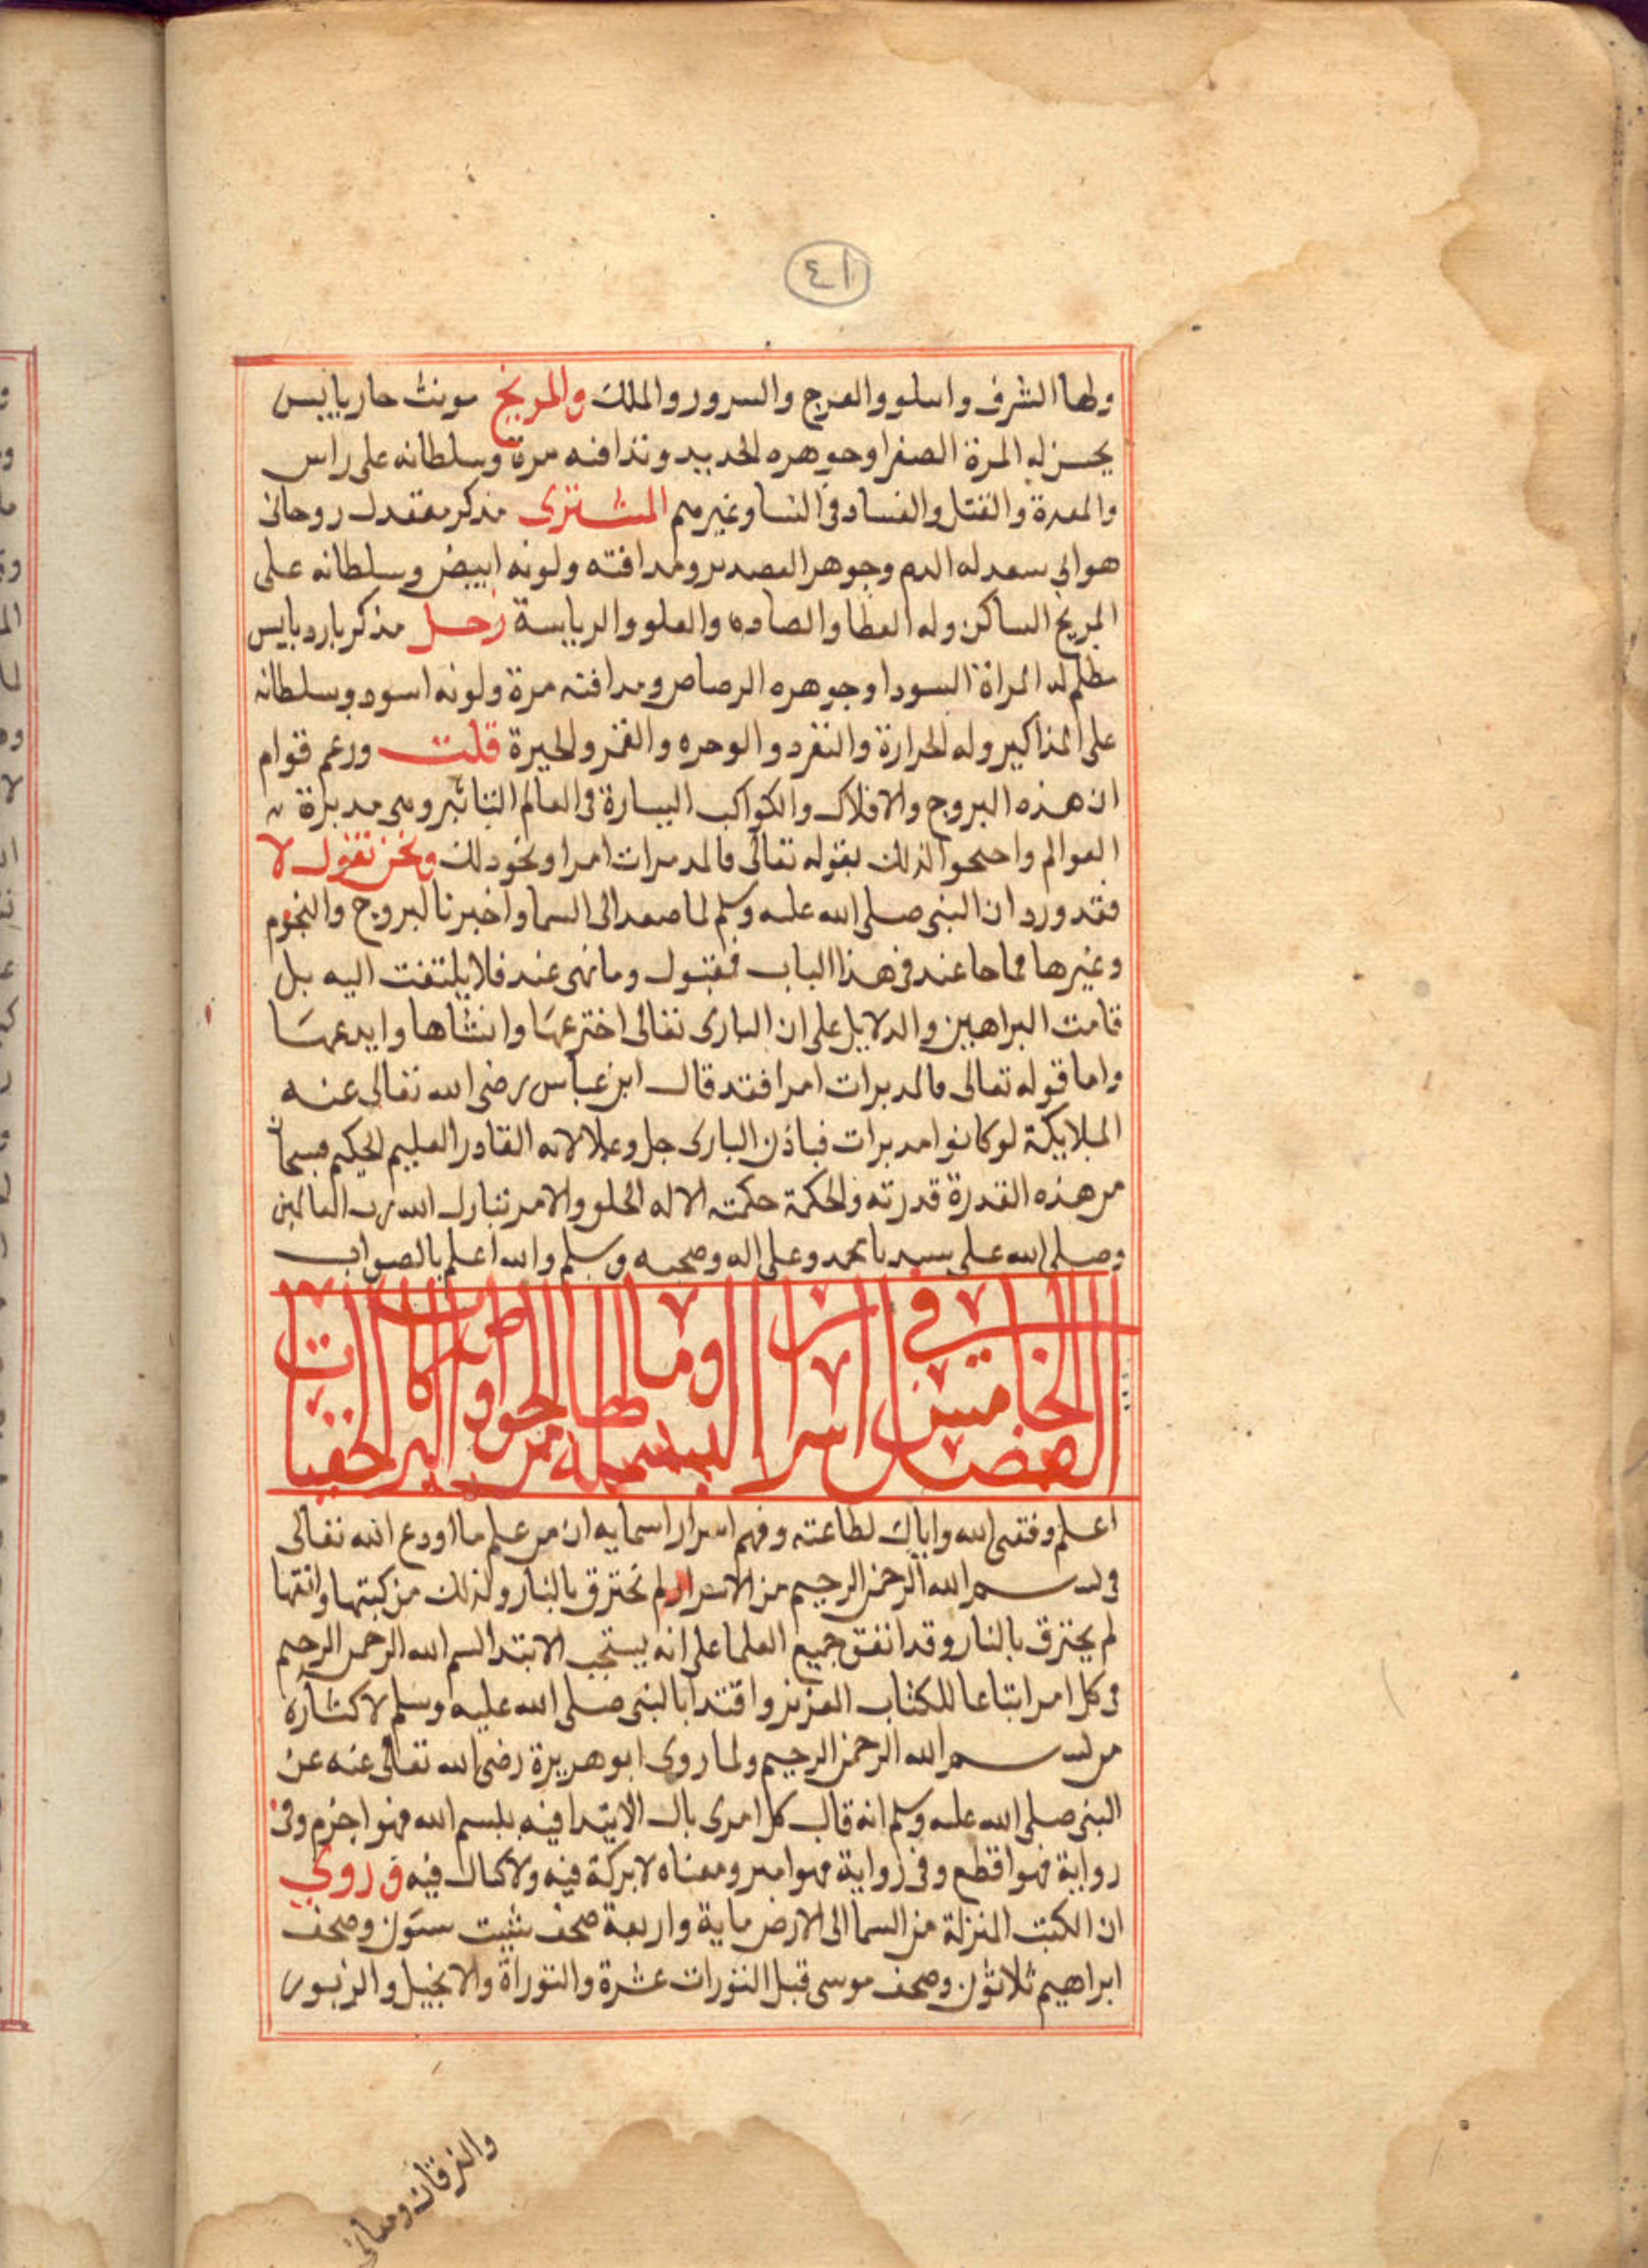 ٤١
ولها الشرف واسلو والفرج والسرور والملك والمريخ مونث حار يابس
له المرة الصفرا وجوهره الحديد ومذاقته مرة وسلطانه على راس
والمعدة والقتل والفساد في النسا وغيرهم المشترى مذكر معتدل روحانى
هوائي سعد له الدم وجوهر القصدير ومذاقته ولونه ابيض وسلطانه على
الساكن وله العطا والعلو والرياسة زحل مذكر بارد يابس
مظلم له المراة السودا وجوهره الرصاص ومذاقته مرة ولونه اسود وسلطانه
على المذاكير وله الحرارة والتفرد والوحده والفقر والحيرة قلت وزعم قوام
ان هذه البروج والافلاك والكواكب السيارة في العالم التاثير وهي مدبرة
العوالم واحتجوا لذلك بقوله تعالى فالمدبرات امرا ونحو ذلك ونحن نقول لا
فقد ورد ان النبى صلى الله عليه وسلم لما صعد الى السما واخبرنا البروج والنجوم
وغيرها فما جا عنه في هذا الباب فمقبول وما نهى عنه فلا يلتفت اليه بل
قامت البراهين والدلايل على ان البارى تعالى اخترعها وانشاها وابدعها
واما قوله تعالى فالمدبرات امرا فقد قال ابن عباس رضى الله تعالى عنه
الملايكة لو كانوا مدبرات فباذن البارى جل وعلا لانه القادر العليم الحكيم فسبحان
من هذه القدرة قدرته والحكمة حكمته الا له الخلق والامر تبارك الله رب العالمين
وصلى الله على سيدنا محمد وعلى اله وصحبه وسلم والله اعلم بالصواب
الفصل الخامس في اسرار البسملة وما لها من الخواص والبركات الخفيات
اعلم وفقنى الله واياك لطاعته وفهم اسرار اسمايه ان من علم ما اودع الله تعالى
في بسم الله الرحمن الرحيم من الاسرار لم تحترق بالنار ولذلك من كتبها واتقنها
لم يحترق بالنار وقد اتفق جميع العلما على انه يستحب الابتدا بسم الله الرحمن الرحيم
في كل امر اتباعا للكتاب العزيز واقتدا بالنبى صلى الله عليه وسلم لاكثاره
من بسم الله الرحمن الرحيم ولما روى ابو هريرة رضى الله تعالى عنه عن
النبى صلى الله عليه وسلم انه قال كل امرى بال لا يبتدا فيه ببسم الله فهو اجزم وفى
رواية فهو اقطع وفى رواية فهو ابتر ومعناه لا بركة فيه ولا كمال فيه وروي
ان الكتب المنزلة من السما الى الارض ماية واربعة صحف شيت ستون وصحف
ابراهيم ثلاثون وصحف موسى قبل التورات عشرة والتوراة والانجيل والزبور
والفرقان ومعانى